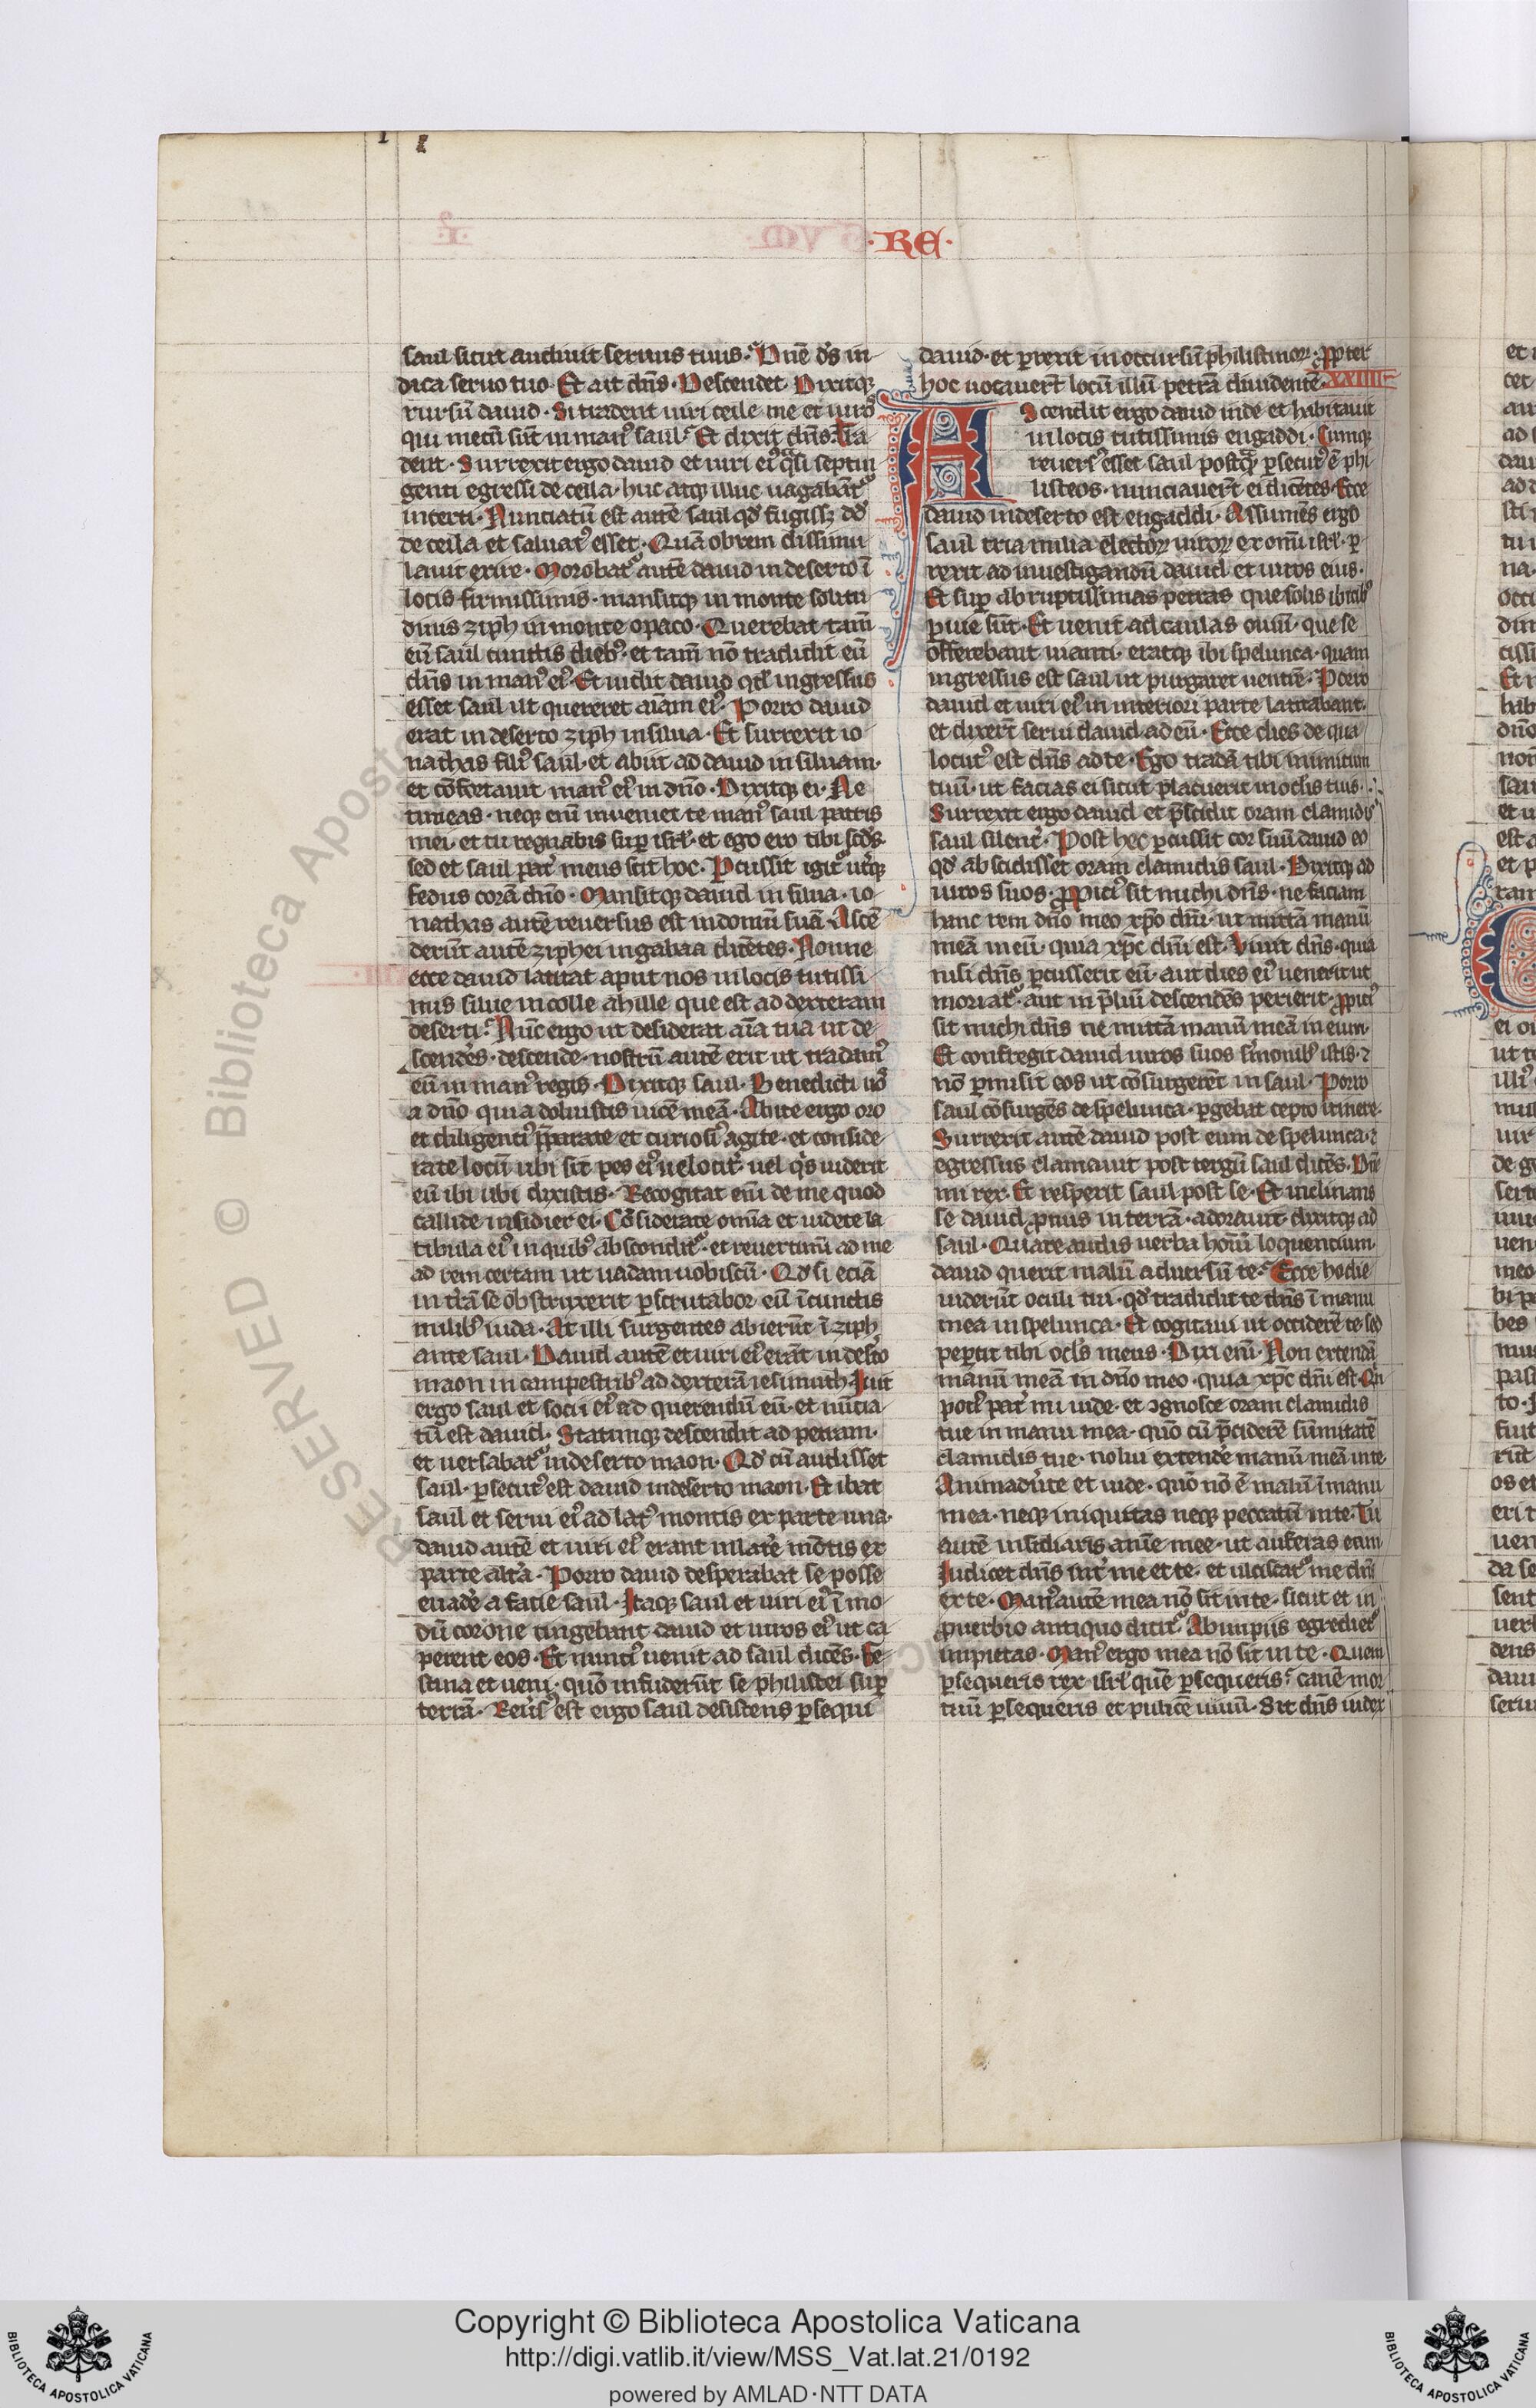 ·RE·
saul sicut audiuit seruus tuus. Dn̄e ds̄ in
dica seruo tuo. Et ait dn̄s. Descendet. Dixitqꝫ
rursū dauid. Si tradent uiri ceile me et uiros
qui mecū sūt in manꝰ saul. Et dixit dn̄s. Tra
dent. Surrexit ergo dauid et uiri eiꝰ q̄si septin
genti egressi de ceila. huc atqꝫ illuc uagabāt᷑
incerti. Nunciatū est autē saul qd̄ fugissꝫ dd̄
de ceila et saluatꝰ esset. Quā obrem dissimu
lauit exire. Morabat᷑ autē dauid in deserto ī
locis firmissimis. mansitqꝫ in monte solitu
dinis ziph in monte opaco. Querebat tam̄
eū saul cunctis diebꝰ. et tam̄ nō tradidit eū
dn̄s in manꝰ eiꝰ. Et uidit dauid qd̄ ingressus
esset saul ut quereret aīam eiꝰ. Porro dauid
erat in deserto ziph in silua. Et surrexit io
nathas filiꝰ saul. et abiit ad dauid in siluam.
et cōfortauit manꝰ eiꝰ in dn̄o. Dixitqꝫ ei. Ne
timeas. neqꝫ eni̅ inueniet te manꝰ saul patris
mei. et tu regnabis suꝑ isrl̄. et ego ero tibi scd̄s.
sed et saul pat̄ meus scit hoc. Percussit igit᷑ ut̄qꝫ
fedus corā dn̄o. Mansitqꝫ dauid in silua. io
nathas autē reuersus est in domū suā. Ascē
derūt autē ziphei in gabaa dicētes. Nonne
ecce dauid latitat aput nos in locis tutissi
mis silue in colle ahille que est ad dexteram
deserti. Nūc ergo ut desiderat aīa tua ut de
scendēs. descende. nostrū autē erit ut tradamꝰ
eū in manꝰ regis. Dixitqꝫ saul. Benedicti uos
a dn̄o quia doluistis uicē meā. Abite ergo oro
et diligentiꝰ p̄parate et curiosiꝰ agite. et conside
rate locū ubi sit pes eiꝰ uelocit̄. uel qͥs uiderit
eū ibi ubi dixistis. Recogitat eni̅ de me quod
callide insidier ei. Cōsiderate omīa et uidete la
tibula eiꝰ in quibꝰ abscondit᷑. et reuertimī ad me
ad rem certam ut uadam uobiscū. Qd̄ si eciā
in t̄rā se obstruxerit ꝑscrutabor eū ī cunctis
milibꝰ iuda. At illi surgentes abierūt ī ziph
ante saul. Dauid autē et uiri eiꝰ erāt in des̄to
maon in campestribꝰ ad dexterā iesimuth. Iuit
ergo saul et socii eiꝰ ad querendū eū. et nūcia
tū est dauid. Statimqꝫ descendit ad petram.
et uersabat᷑ in deserto maon. Qd̄ cū audisset
saul. ꝑsecutꝰ est dauid in deserto maon. Et ibat
saul et serui eiꝰ ad latꝰ montis ex parte una.
dauid autē et uiri eiꝰ erant in lat̄e mōtis ex
parte alt̄a. Porro dauid desperabat se posse
euad̄e a facie saul. Itaqꝫ saul et uiri eiꝰ ī mo
dū corone cingebant dauid et uiros eiꝰ ut ca
perent eos. Et nunciꝰ uenit ad saul dicēs. Fe
stina et ueni. quō infuderūt se philistei suꝑ
terrā. Reuersꝰ est ergo saul desistens ꝑsequi
dauid. et ꝑrexit in occursū philistinoꝝ. ꝓpter
hoc uocauer̄t locū illū petrā diuidentē. XXIIII
Ascendit ergo dauid inde et habitauit
in locis tutissimis engaddi. Cumqꝫ
reuersꝰ esset saul postq̄ ꝑsecutꝰ ē phi
listeos. nunciauer̄t ei dicētes. Ecce
dauid in deserto est engaddi. Assumēs ergo
saul tria milia electoꝝ uiroꝝ ex omī isrl̄. ꝑ
rexit ad inuestigandū dauid et uiros eius.
Et suꝑ abruptissimas petras que solis ibicibꝰ
ꝑuie sūt. Et uenit ad caulas ouiū. que se
offerebant uianti. eratqꝫ ibi spelunca. quam
ingressus est saul ut purgaret uentrē. Porro
dauid et uiri eiꝰ in interiori parte latitabant.
et dixer̄t serui dauid ad eū. Ecce dies de qua
locutꝰ est dn̄s ad te. Ego tradā tibi inimicum
tuū. ut facias ei sicut placuerit in oc̄lis tuis.
Surrexit ergo dauid et p̄scidit oram clamidis
saul silent̄. Post hec ꝑcussit cor suū dauid eo
qd̄ abscidisset oram clamidis saul. Dixitqꝫ ad
uiros suos. ꝓpiciꝰ sit michi dn̄s. ne faciam
hanc rem dn̄o meo xp̄o dn̄i. ut mittā manū
meā in eū. quia xp̄c dn̄i est. Viuit dn̄s. quia
nisi dn̄s ꝑcusserit eū. aut dies eiꝰ uenerit ut
moriat᷑. aut in p̄liū descendēs perierit. ꝓpiciꝰ
sit michi dn̄s ne mittā manū meā in eum.
Et confregit dauid uiros suos s̄monibꝰ istis. ⁊
nō ꝑmisit eos ut cōsurgerēt in saul. Porro
saul cōsurgēs de spelunca. ꝑgebat cepto itinere.
Surrexit autē dauid post eum de spelunca. ⁊
egressus clamauit post tergū saul dicēs. Dn̄e
mi rex. Et respexit saul post se. Et inclinans
se dauid ꝓnus in terrā. adorauit. dixitqꝫ ad
saul. Quare audis uerba homī loquencium.
dauid querit malū aduersū te. Ecce hodie
uiderūt oculi tui. qd̄ tradidit te dn̄s ī manu
mea in spelunca. Et cogitaui ut occiderē te. sed
pepercit tibi ocl̄s meus. Dixi eni̅. Non extendā
manū meā in dn̄o meo. quia xp̄c dn̄i est. Qin
pociꝰ pat̄ mi uide. et ↄgnosce oram clamidis
tue in manu mea. quō cū p̄ciderē sūmitatē
clamidis tue. nolui extend̄e manū meā in te.
Animadu̅te et uide. quō nō ē malū ī manu
mea. neqꝫ iniquitas neqꝫ peccatū in te. Tu
autē insidiaris anīe mee. ut auferas eam.
Iudicet dn̄s int̄ me et te. et ulciscat᷑ me dn̄s
ex te. Manꝰ autē mea nō sit in te. sicut et in
ꝓuerbio antiquo dicit᷑. Ab impiis egrediet᷑
impietas. Manꝰ ergo mea nō sit in te. Quem
ꝑsequeris rex isrl̄. quē ꝑsequeris. canē mor
tuū ꝑsequeris et pulicē unū. Sit dn̄s iudex
RESERVED © Biblioteca Aposto
Copyright © Biblioteca Apostolica Vaticana
http://digi.vatlib.it/view/MSS_Vat.lat.21/0192
powered by AMLAD·NTT DATA
BIBLIOTECA APOSTOLICA VATICANA
BIBLIOTECA APOSTOLICA VATICANA